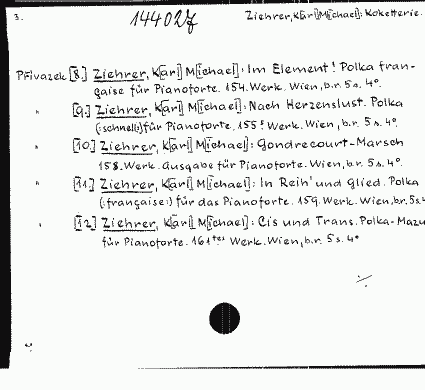 3.
144027
Ziehrer, K[arl] M[ichael]: Koketterie.
Přívazek [8.] Ziehrer, K[arl] M[ichael]: Im Element! Polka fran-
çaise für Pianoforte. 154. Werk. Wien, b.r. 5 s. 4°.
" [9.] Ziehrer, K[arl] M[ichael]: Nach Herzenslust. Polka
(:schnell:) für Pianoforte. 155! Werk. Wien, b.r. 5 s. 4°.
" [10.] Ziehrer, K[arl] M[ichael]: Gondrecourt-Marsch
158. Werk. Ausgabe für Pianoforte. Wien, b.r. 5 s. 4°.
" [11.] Ziehrer, K[arl] M[ichael]: In Reih' und Glied. Polka
(:française:) für das Pianoforte. 159. Werk. Wien, b.r. 5 s. 4
" [12.] Ziehrer, K[arl] M[ichael]: Cis und Trans. Polka-Mazu
für Pianoforte. 161tes Werk. Wien, b.r. 5 s. 4°